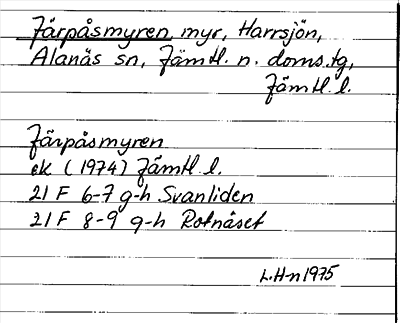 Järpåsmyren myr, Harrsjön,
Alanäs sn, Jämtl. n. doms.tg,
Jämtl. l.
Järpåsmyren
ek (1974) Jämtl. l.
21 F 6-7 g-h Svanliden
21 F 8-9 g-h Rotnäset
L.H-n 1975